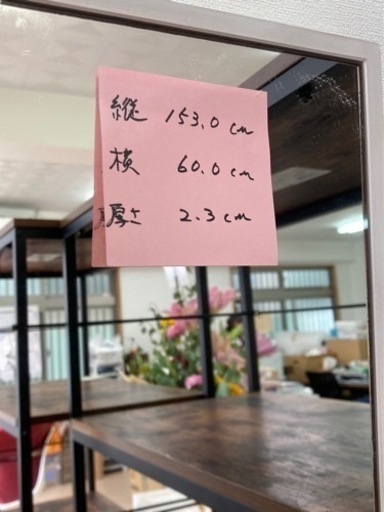 縦 153.0 cm
横 60.0 cm
厚さ 2.3 cm